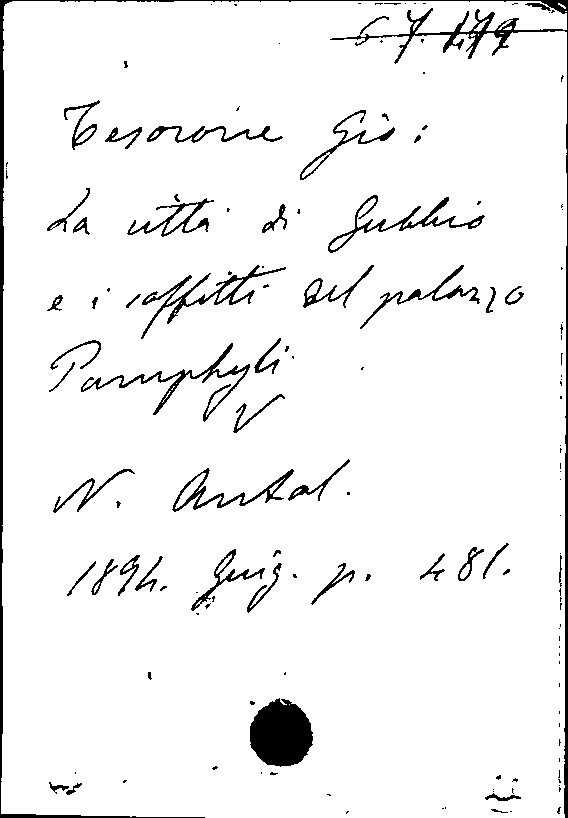 6.7.479
Tesorone Gio:
La città di Gubbio
e i soffitti del palazzo
Pamphyli
N. Antol.
1894. Giug. p. 481.